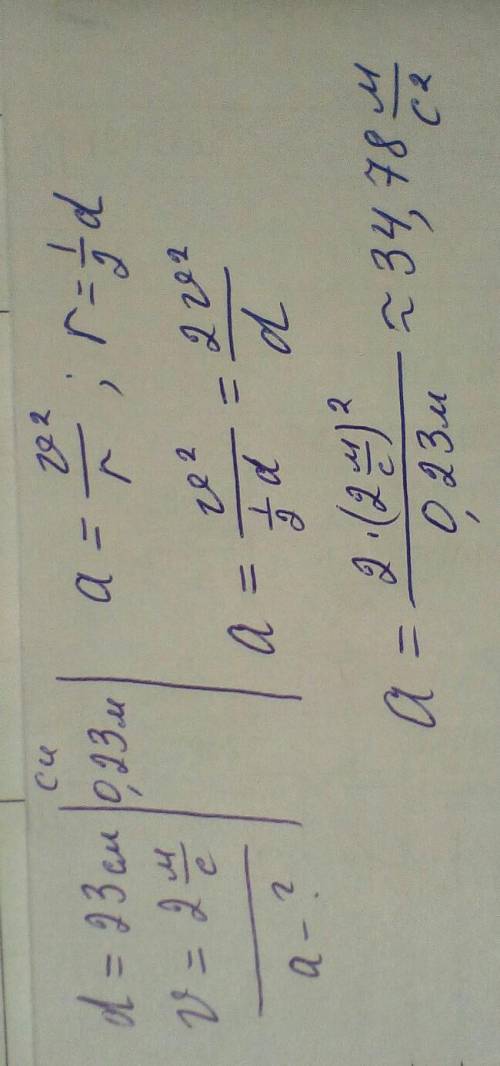 d = 23 см | 0,23 м
си
v = 2 м/с
a - ?
a = v²/r ; r = 1/2 d
a = v²/(1/2 d) = 2v²/d
a = 2·(2 м/с)²/0,23 м ≈ 34,78 м/с²